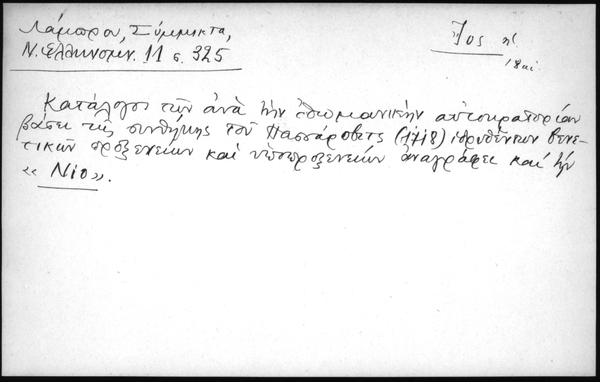 Λάμπρου, Σύμμικτα,
Ν. Ἑλληνομν. 11 σ. 325
Ἴος ἡ
18 αἰ.
Κατάλογος τῶν ἀνὰ τὴν ὀθωμανικὴν αὐτοκρατορίαν
βάσει τῆς συνθήκης τοῦ Πασσάροβιτς (1718) ἱδρυθέντων βενε-
τικῶν προξενείων καὶ ὑποπροξενείων ἀναγράφει καὶ τὴν
« Νίο ».